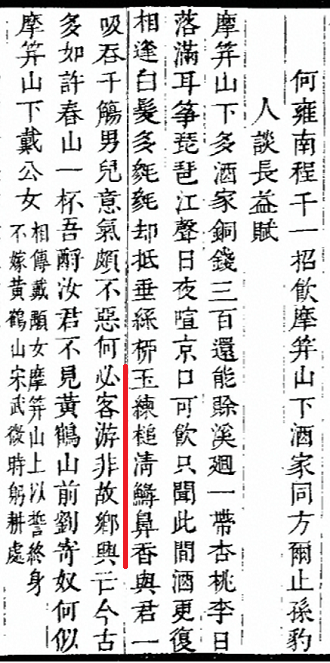 何雍南程千一招飲摩笄山下酒家同方爾止孫豹
人談長益賦
摩笄山下多酒家銅錢三百還能賒溪迴一帶杏桃李日
落滿耳箏琵琶江聲日夜喧京口可飲只聞此間酒更復
相逢白髮多毿毿却抵垂絲栁玉練槌清鱗鼻香與君一
吸吞千觴男兒意氣頗不惡何必客游非故鄉興亡今古
多如許春山一杯吾酹汝君不見黃鶴山前劉寄奴何似
摩笄山下戴公女
相傳戴顒女摩笄山上以誓終身
不嫁黃鶴山宋武微時躬耕處